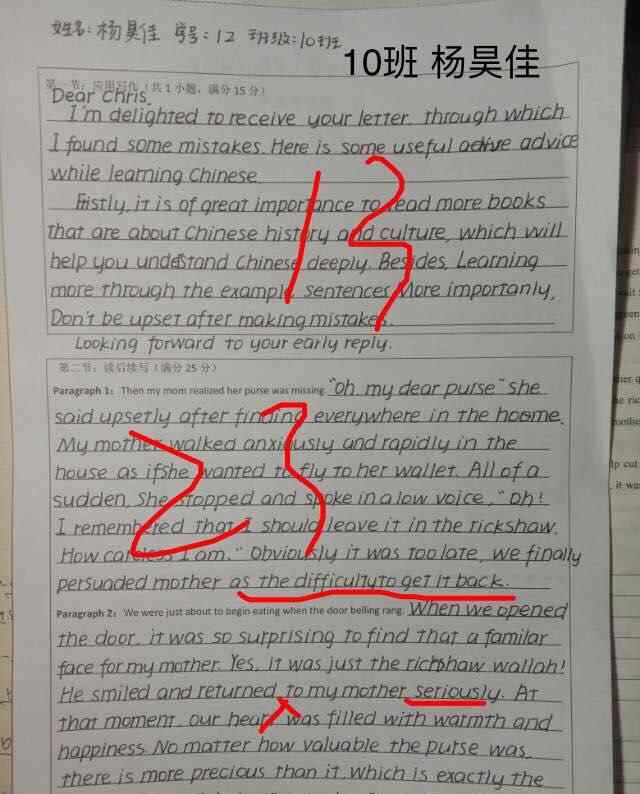 姓名:杨昊佳 学号:12 班级:10班
10班 杨昊佳
第一节:应用写作(共1小题,满分15分)
Dear Chris.
I'm delighted to receive your letter, through which
I found some mistakes. Here is some useful advice
while learning Chinese.
Fistly, it is of great importance to read more books
that are about Chinese history and culture, which will
help you undestand Chinese deeply. Besides, Learning
more through the example sentences. More importanly,
Don't be upset after making mistakes.
Looking forward to your early reply.
13
第二节:读后续写(满分25分)
Paragraph 1: Then my mom realized her purse was missing. "oh my dear purse" she
said upsetly after finding everywhere in the home.
My mother walked anxiously and rapidly in the
house as ifshe wanted to fly to her wallet. All of a
sudden, She stopped and spoke in a low voice, "Oh!
I remembered that I should leave it in the rickshaw.
How careless I am." Obviously it was too late, we finally
persuaded mother as the difficulty to get it back.
23
Paragraph 2: We were just about to begin eating when the door belling rang. When we opened
the door, it was so surprising to find that a familar
face for my mother. Yes, It was just the richshaw wallah!
He smiled and returned to my mother seriously. At
that moment, our heart was filled with warmth and
happiness. No matter how valuable the purse was,
there is more precious than it which is exactly the